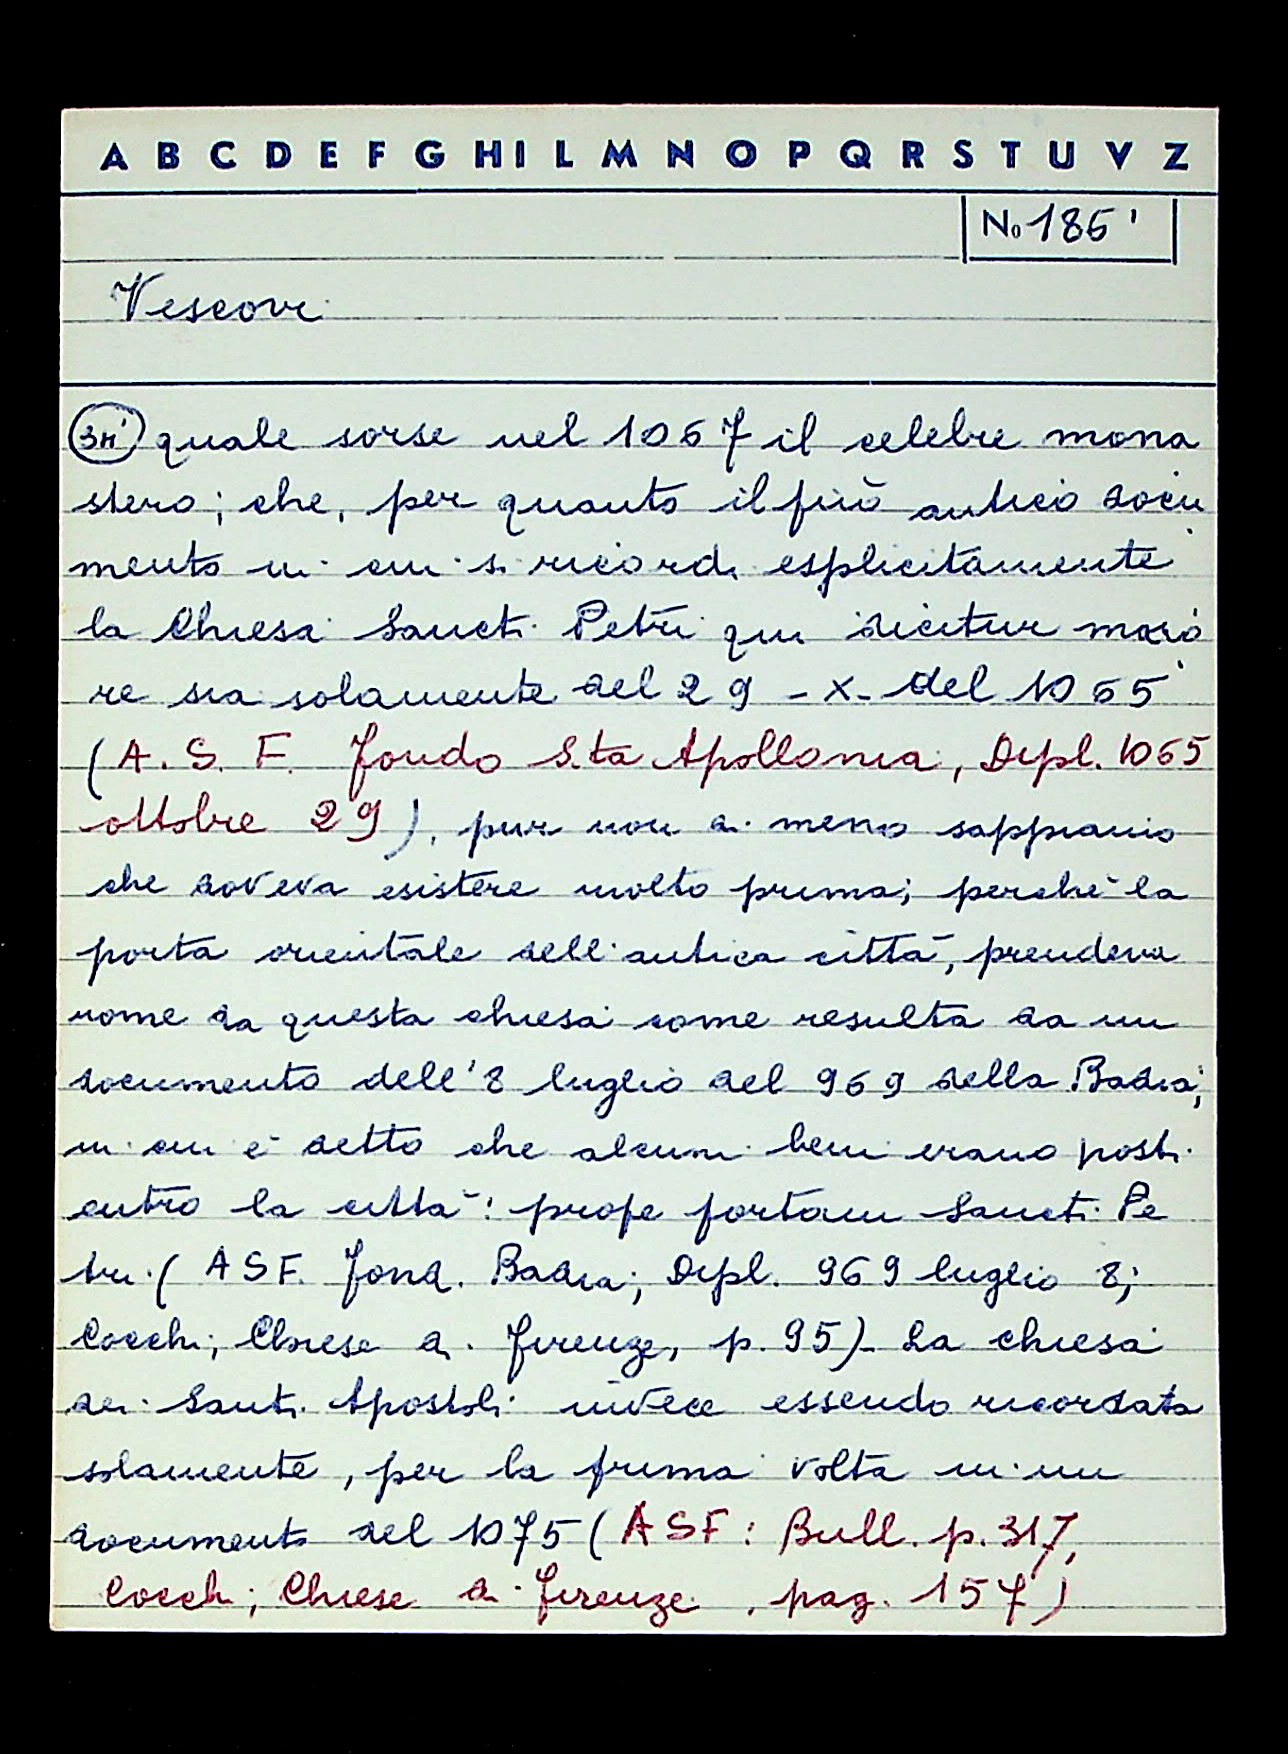 A B C D E F G H I L M N O P Q R S T U V Z
No 185'
Vescovi
quale sorse nel 1067 il celebre mona
stero; che, per quanto il più antico docu
mento in cui si ricordi esplicitamente
la Chiesa Sancti Petri qui dicitur maio
re sia solamente del 29 - X - del 1065
(A. S. F. Fondo S.ta Apollonia, Dipl. 1065
ottobre 29), pur non di meno sappiamo
che doveva esistere molto prima; perchè la
porta orientale dell'antica città, prendeva
nome da questa chiesa come resulta da un
documento dell'8 luglio del 969 della Badia;
in cui è detto che alcuni beni erano posti
entro la città: prope portam Sancti Pe
tri (ASF. Fond. Badia; Dipl. 969 luglio 8;
Cocchi; Chiese di Firenze, p. 95). La chiesa
dei Santi Apostoli invece essendo ricordata
solamente, per la prima volta in un
documento del 1075 (ASF: Bull. p. 317,
Cocchi; Chiese di Firenze, pag. 157)